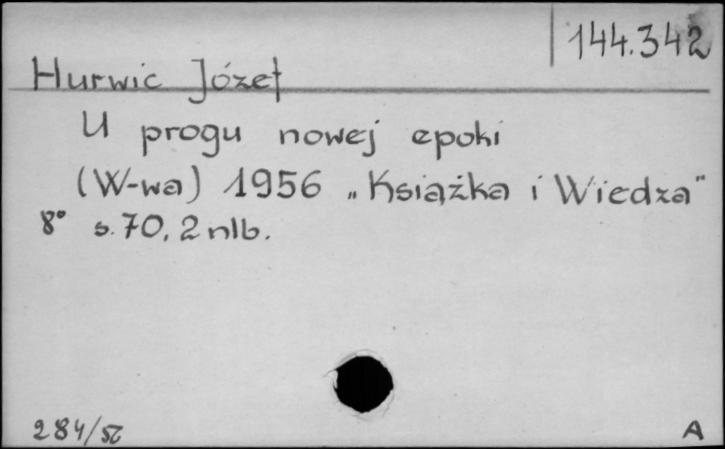 144.342
Hurwic Józef
U progu nowej epoki
(W-wa) 1956 „Książka i Wiedza”
8° s. 70, 2 nlb.
284/56
A